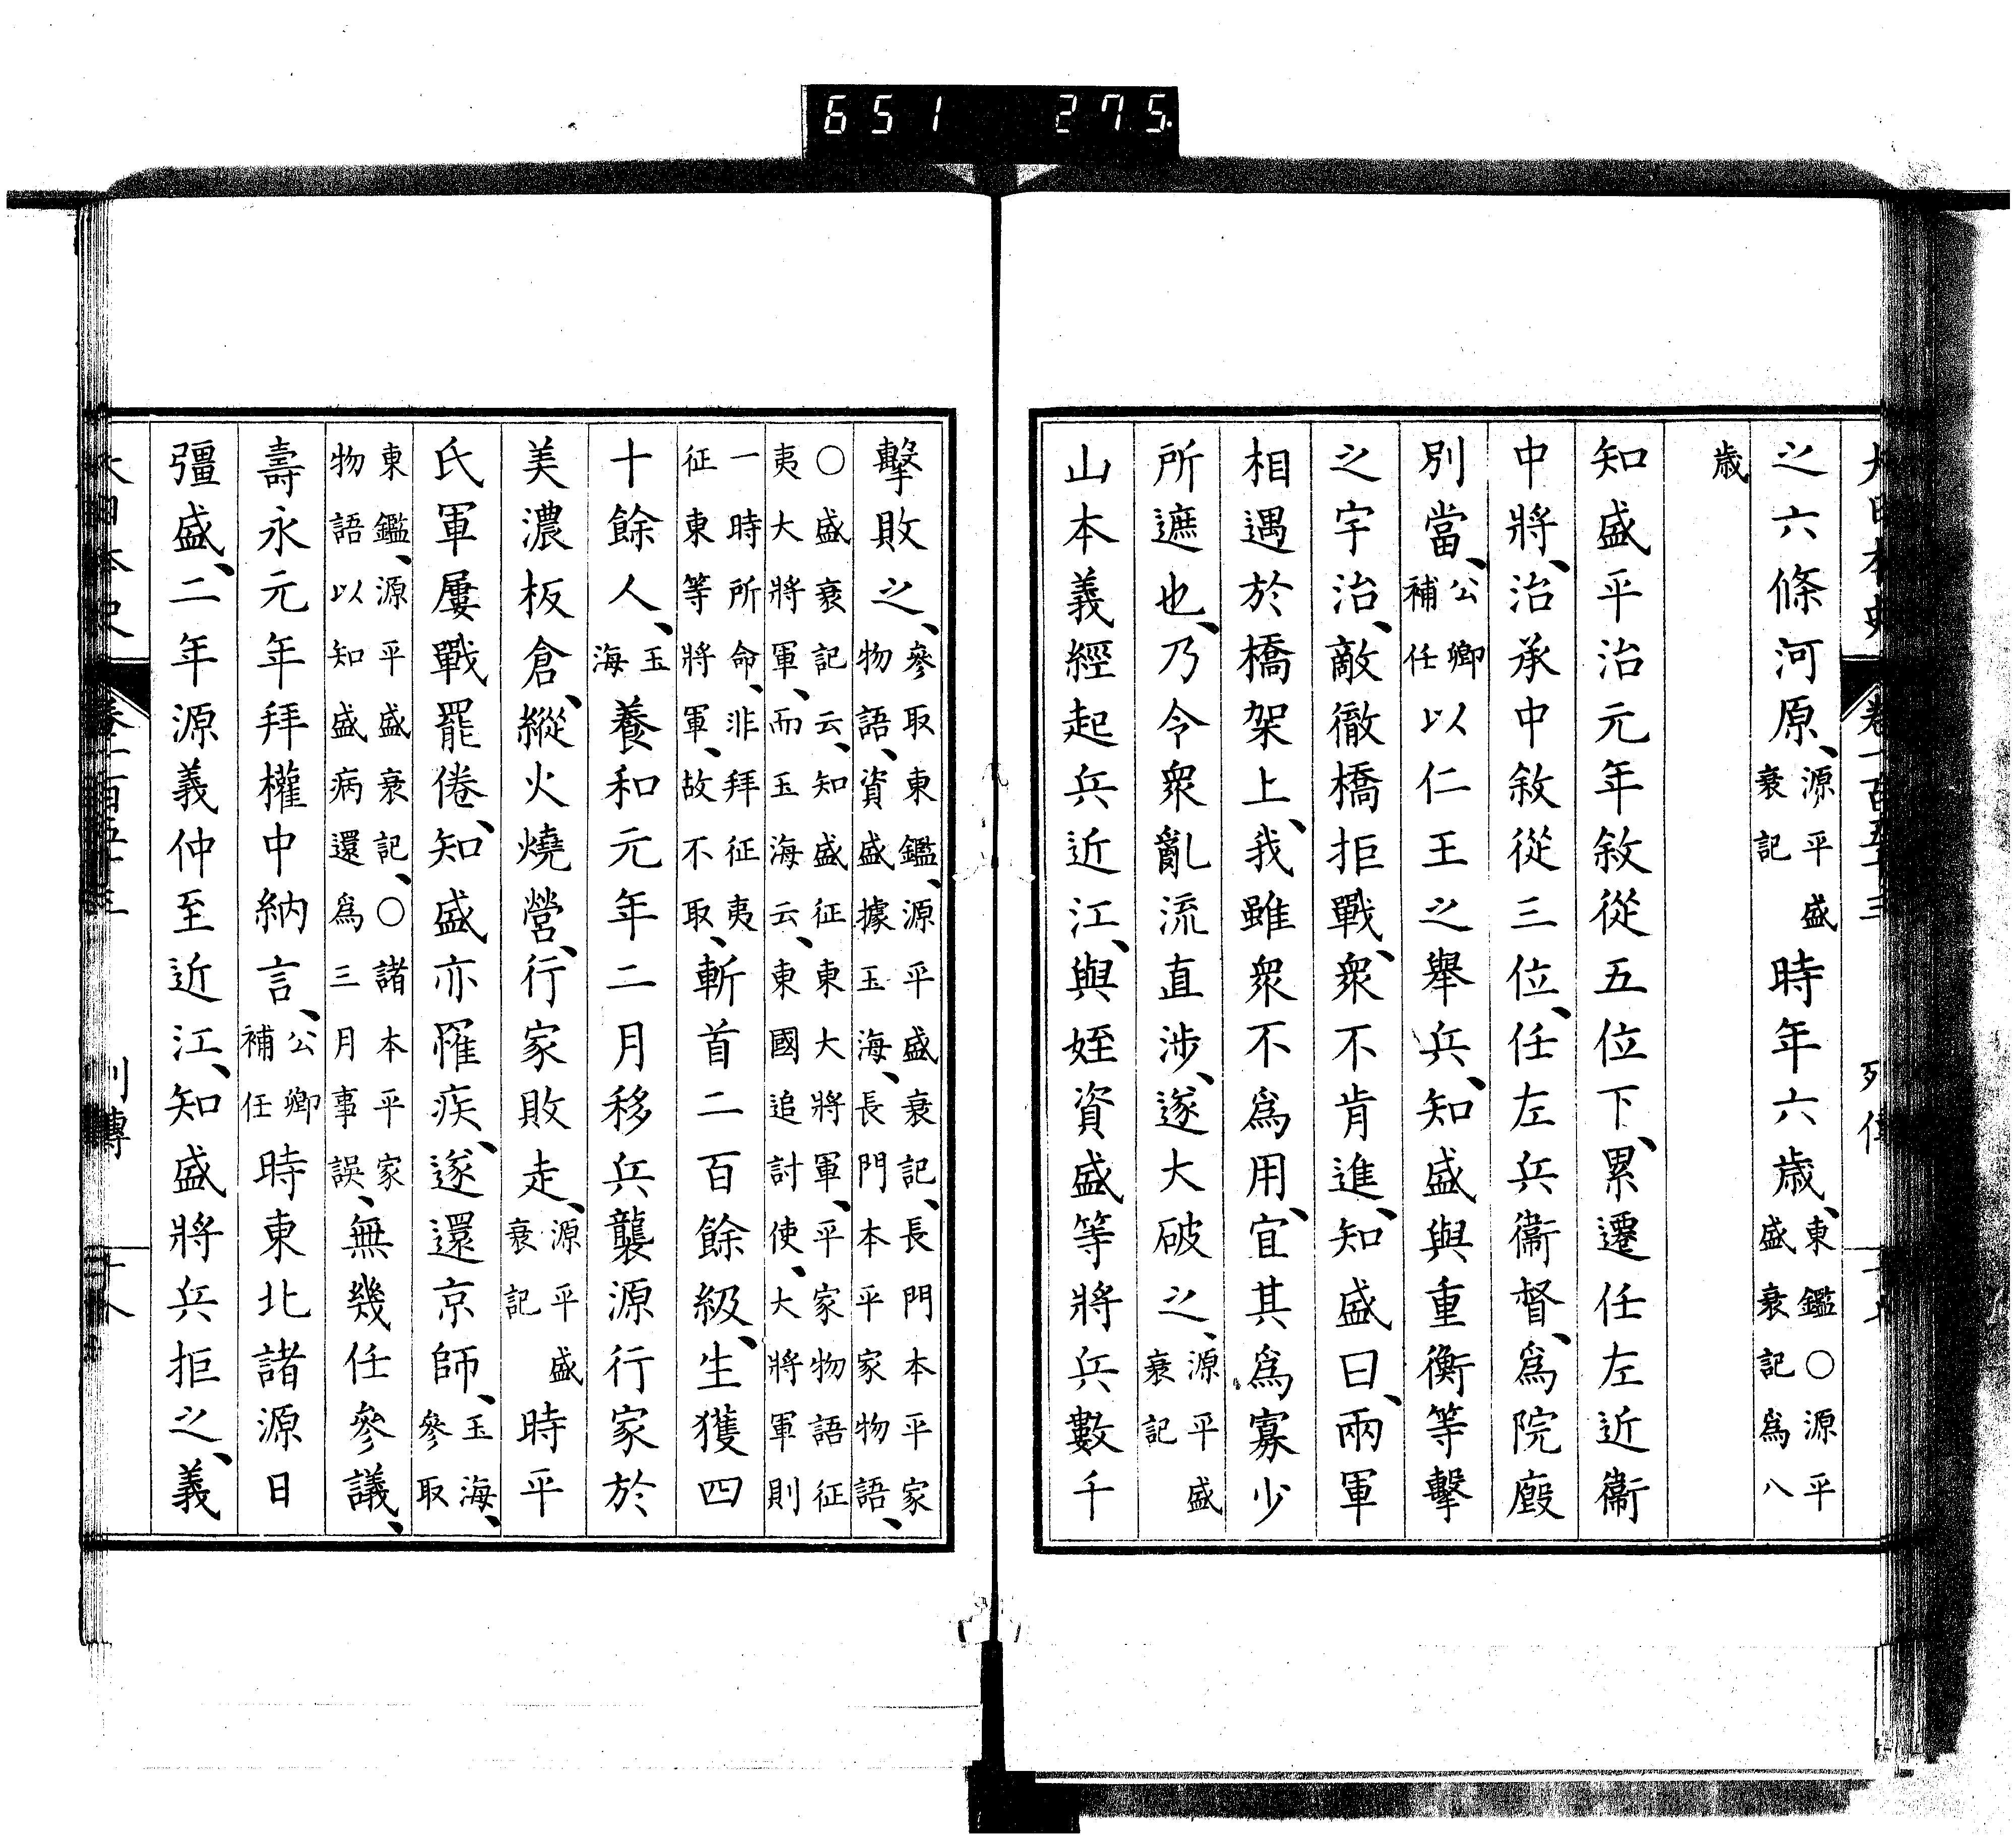 651 275
之六條河原、源平盛衰記時年六歳、東鑑○源平盛衰記爲八
歳
知盛平治元年敘從五位下、累遷任左近衞
中將、治承中敘從三位、任左兵衞督、爲院廏
別當、公卿補任以仁王之舉兵、知盛與重衡等擊
之宇治、敵徹橋拒戰、衆不肯進、知盛曰、兩軍
相遇於橋架上、我雖衆不爲用、宜其爲寡少
所遮也、乃令衆亂流直渉、遂大破之、源平盛衰記
山本義經起兵近江、與姪資盛等將兵數千
擊敗之、參取東鑑、源平盛衰記、長門本平家物語、資盛據玉海、長門本平家物語、
○盛衰記云、知盛征東大將軍、平家物語征夷大將軍、而玉海云、東國追討使、大將軍則
一時所命、非拜征夷征東等將軍、故不取、斬首二百餘級、生獲四
十餘人、玉海養和元年二月移兵襲源行家於
美濃板倉、縱火燒營、行家敗走、源平盛衰記時平
氏軍屢戰罷倦、知盛亦罹疾、遂還京師、玉海、參取
東鑑、源平盛衰記、○諸本平家物語以知盛病還爲三月事誤、無幾任參議、
壽永元年拜權中納言、公卿補任時東北諸源日
彊盛、二年源義仲至近江、知盛將兵拒之、義